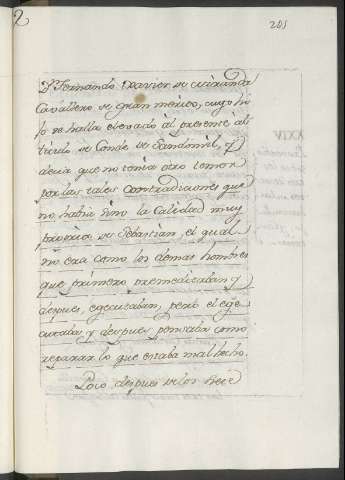 2
201
Dⁿ Fernando Xavier de Miranda
Cavallero de gran merito, cuyo hi
jo se halla elevado àl presente àl
titulo de Conde de Sandomil, y
decia que no tenia otro temor
por las tales contradiciones que
no havia sino la Calidad muy
propria de Sebastian, el qual
no era como los demas hombres
que primero premeditaban y
despues, egecutaban, pero el ege
cutaba y despues pensaba como
reparar lo que estaba mal hecho.
Poco despues de los trece
XXIV